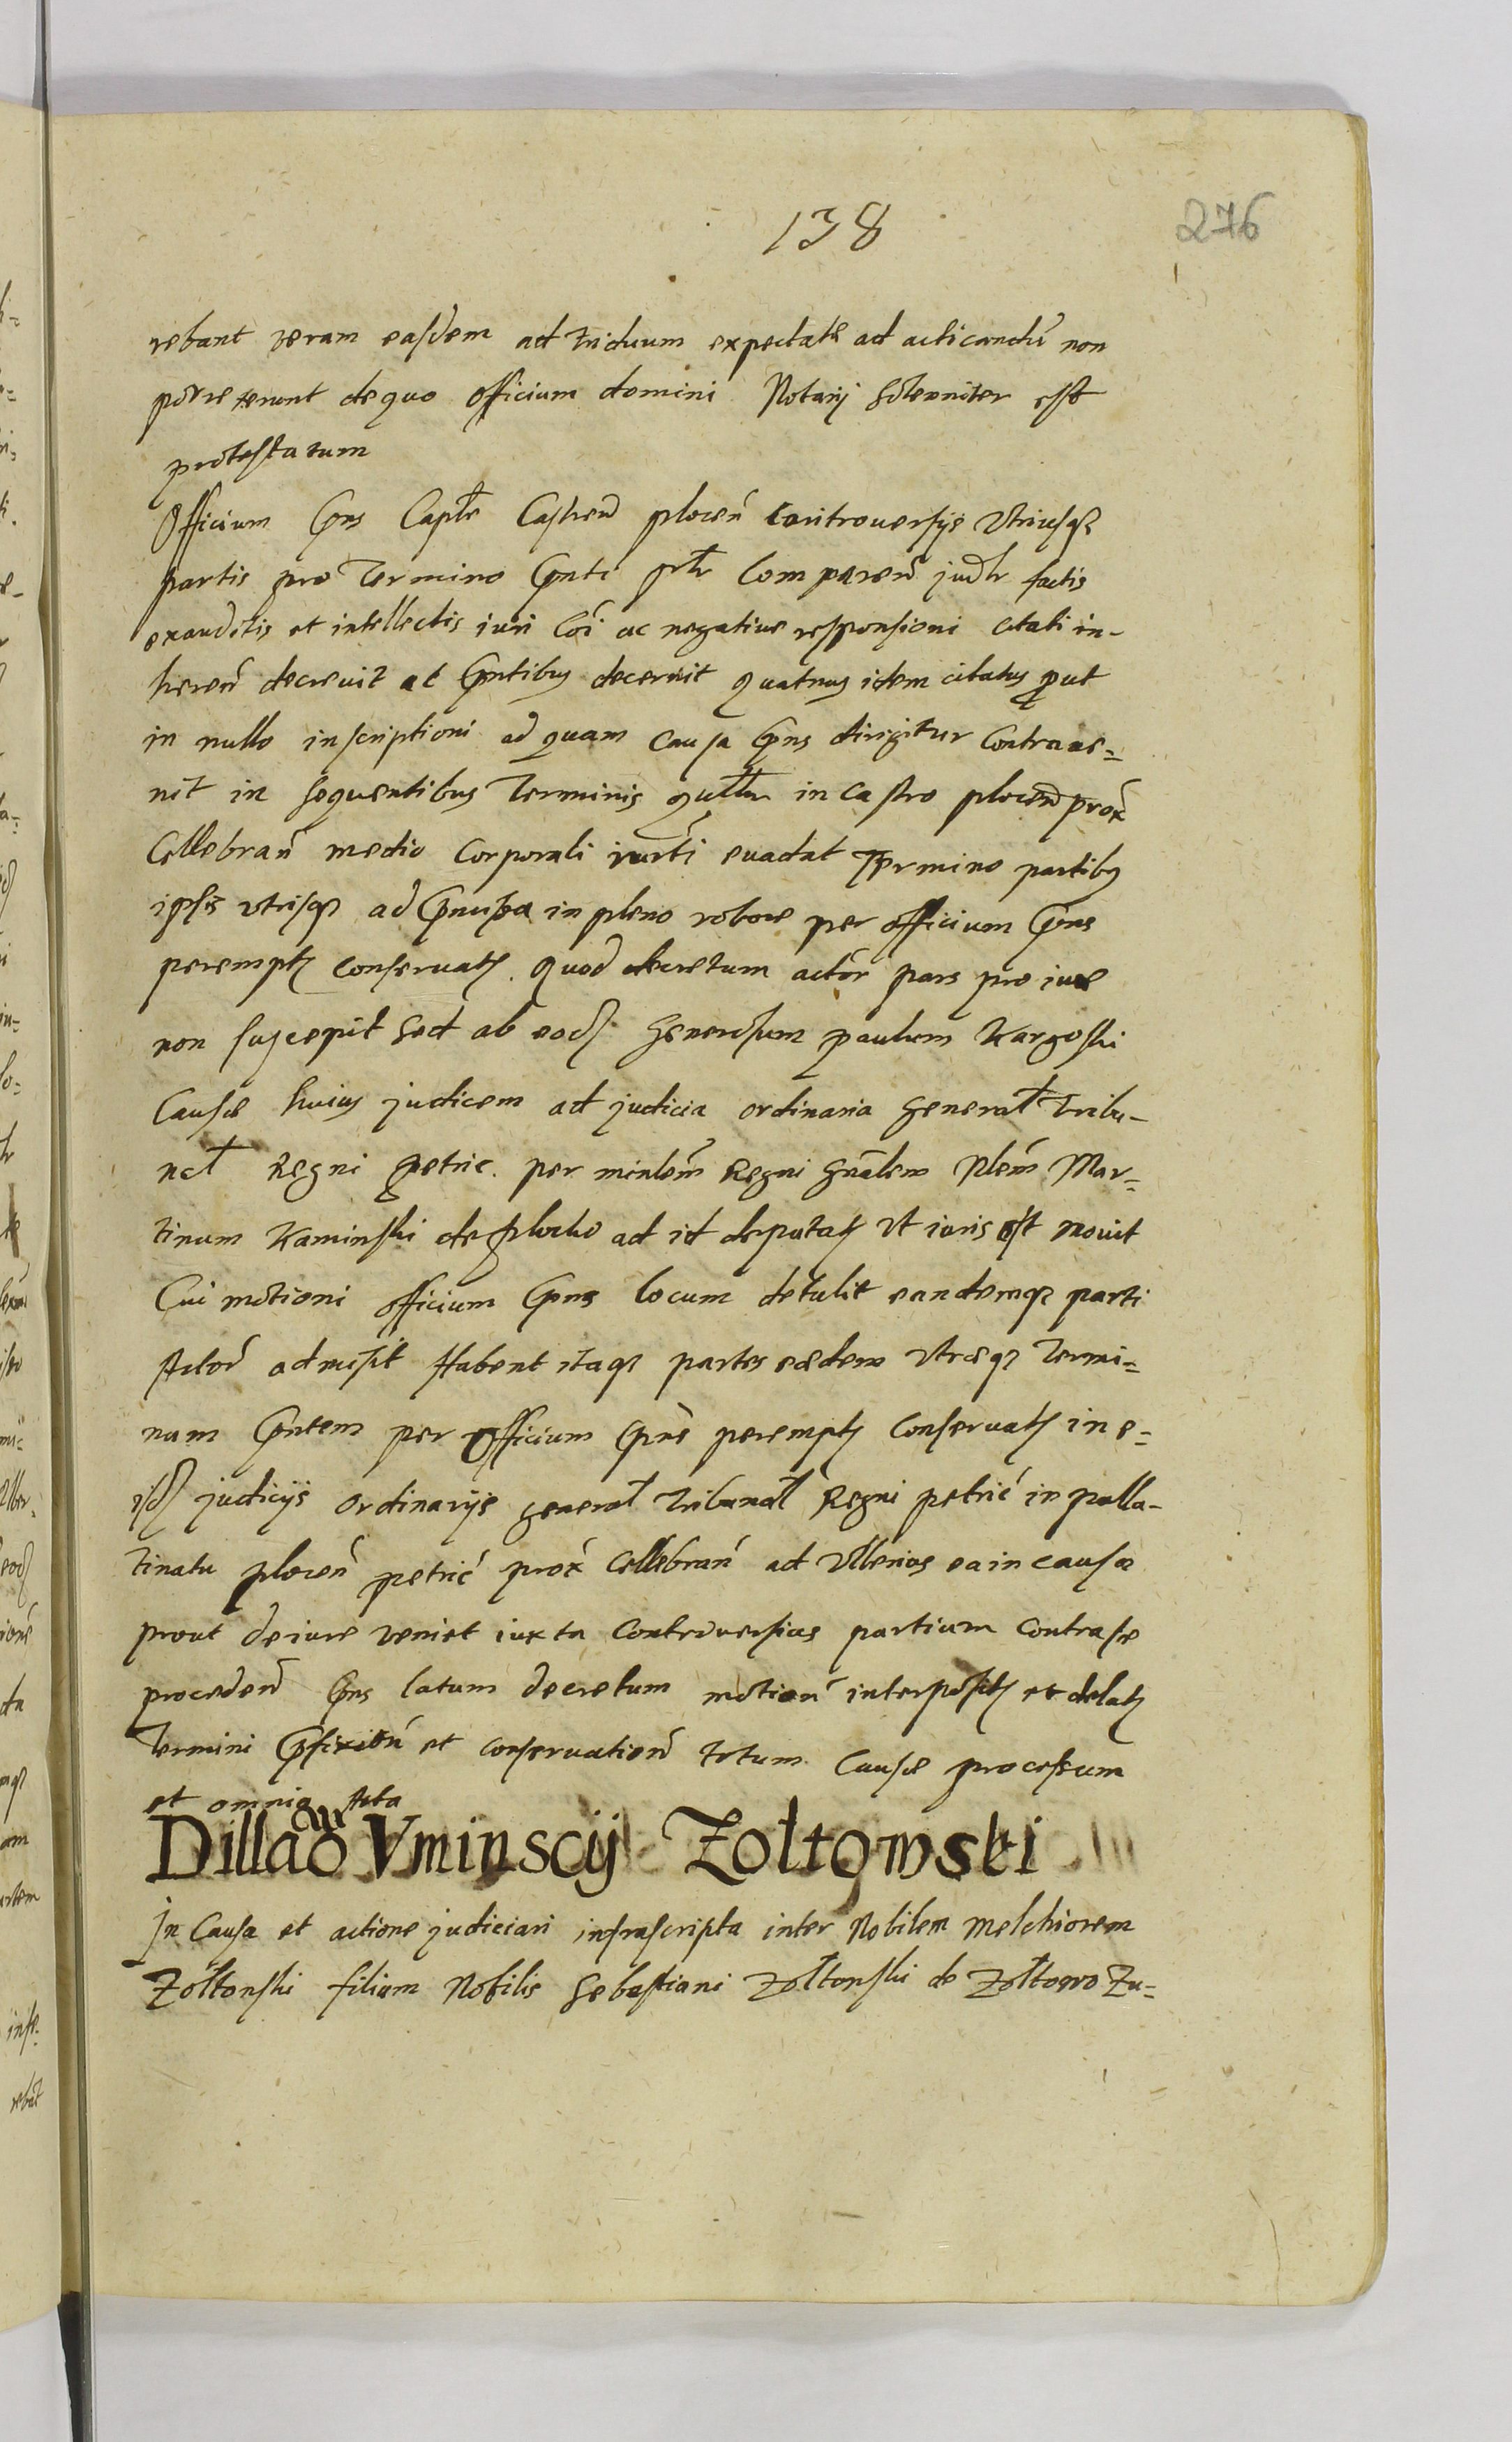 138
276
rebant veram easdem ad triduum expectatę ad acticandū non
porrexerunt de quo officium domini Notarij solemniter est
protestatum
Officium Pns Capłe Castren plocen controuersijs vtriusq3
partis pro Termino Pnti Comparen judr factis
exauditis et intellectis iuri Coi ac negative responsioni citati in-
heren decrevit ac Pntibus decernit quatnus idem citatus put
in nullo inscriptioni ad quam causa Pns dirigitur Contraue=
nit in sequentibus Terminis qullr in castro plocen prox
Cellebran medio Corporali iurti euadat Termino partibus
ipsis vtrisq3 ad in pleno robore per officium Pns
perempt conservat. Quod decretum actor pars pro iure
non suscepit sed ab eod. Generosum paulum Kargoski
Causæ huius judicem ad judicia ordinaria generał Tribu-
nał Regni petric. per minlem Regni gnalem plem Mar=
tinum Kaminski de plocko ad id deputat vt iuris est movit
Cui motioni officium Pns locum detulit eandemq3 parti
Actor admisit Habent itaq3 partes eædem vtræq3 Termi=
num Pntem per Officium Pns perempt conservat in e=
isd judicijs ordinarijs generał Tribunał Regni petric in palla-
tinatu plocen petric prox Cellebran ad vllerius ea in causa
prout de iure veniet iuxta controversias partium contra se
proceden Pns latum decretum motion interposit et delat
Termini Pfixion et conservation totum causæ processum
et omnia Acta
Dillao Vminscij cu Zołtowski
In Causa et actione judiciari infrascripta inter Nobilem Melchiorem
Zołtonski filium Nobilis Sebastiani Zołtonski de Zołtowo Zu=